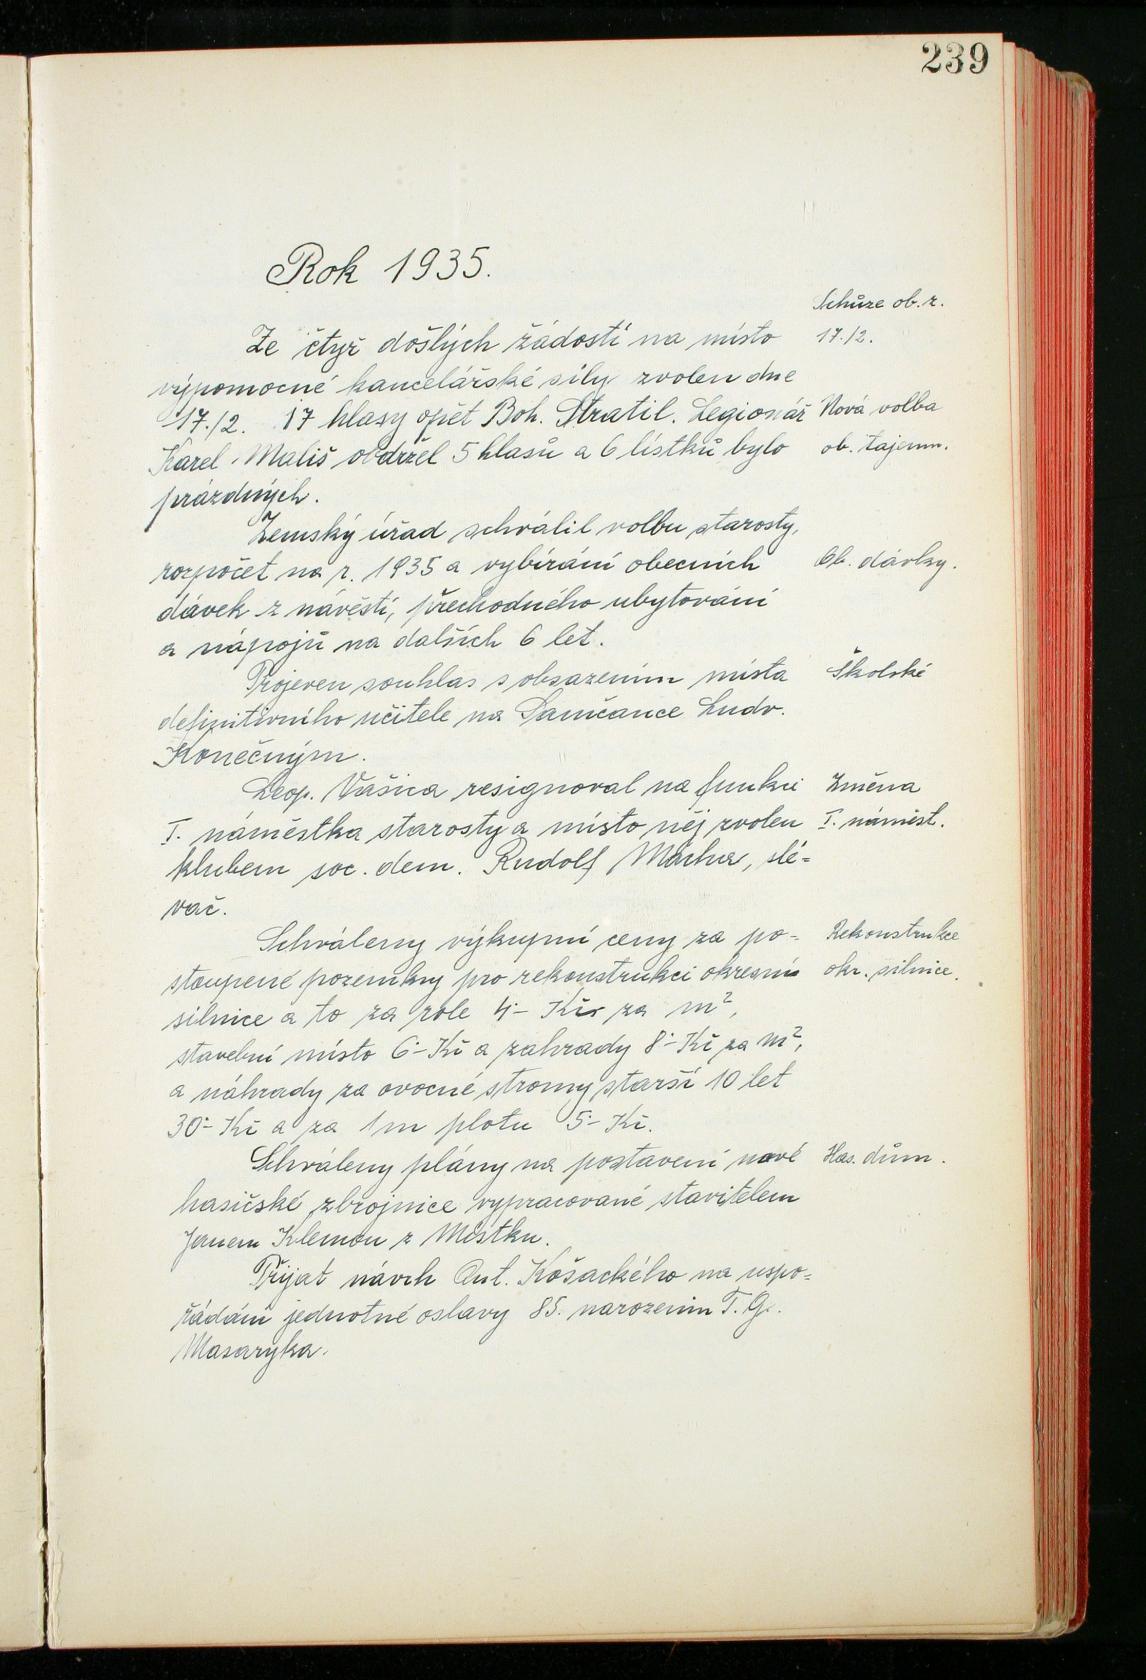 239
Rok 1935.
Schůze ob. r.
Ze čtyř došlých žádostí na místo
17./2.
výpomocné kancelářské síly zvolen dne
17./2. 17 hlasy opět Boh. Stratil. Legionář
Nová volba
Karel Mališ obdržel 5 hlasů a 6 lístků bylo
ob. tajemn.
prázdných.
Zemský úřad schválil volbu starosty,
rozpočet na r. 1935 a vybírání obecních
Ob. dávky.
dávek z návěstí, přechodného ubytování
a nápojů na dalších 6 let.
Projeven souhlas s obsazením místa
Školské
definitivního učitele na Lamčance Ludv.
Konečným.
Leop. Vašica resignoval na funkci
Změna
I. náměstka starosty a místo něj zvolen
I. náměst.
klubem soc. dem. Rudolf Mácha, slé-
vač.
Schváleny výkupní ceny za po-
Rekonstrukce
stoupené pozemky pro rekonstrukci okresní
okr. silnice.
silnice a to za role 4·- Kč za m²,
stavební místo 6·- Kč a zahrady 8·- Kč za m²,
a náhrady za ovocné stromy starší 10 let
30·- Kč a za 1 m plotu 5·- Kč.
Schváleny plány na postavení nové
Has. dům.
hasičské zbrojnice vypracované stavitelem
Janem Klemou z Místku.
Přijat návrh Ant. Košackého na uspo-
řádání jednotné oslavy 85. narozenin T. G.
Masaryka.